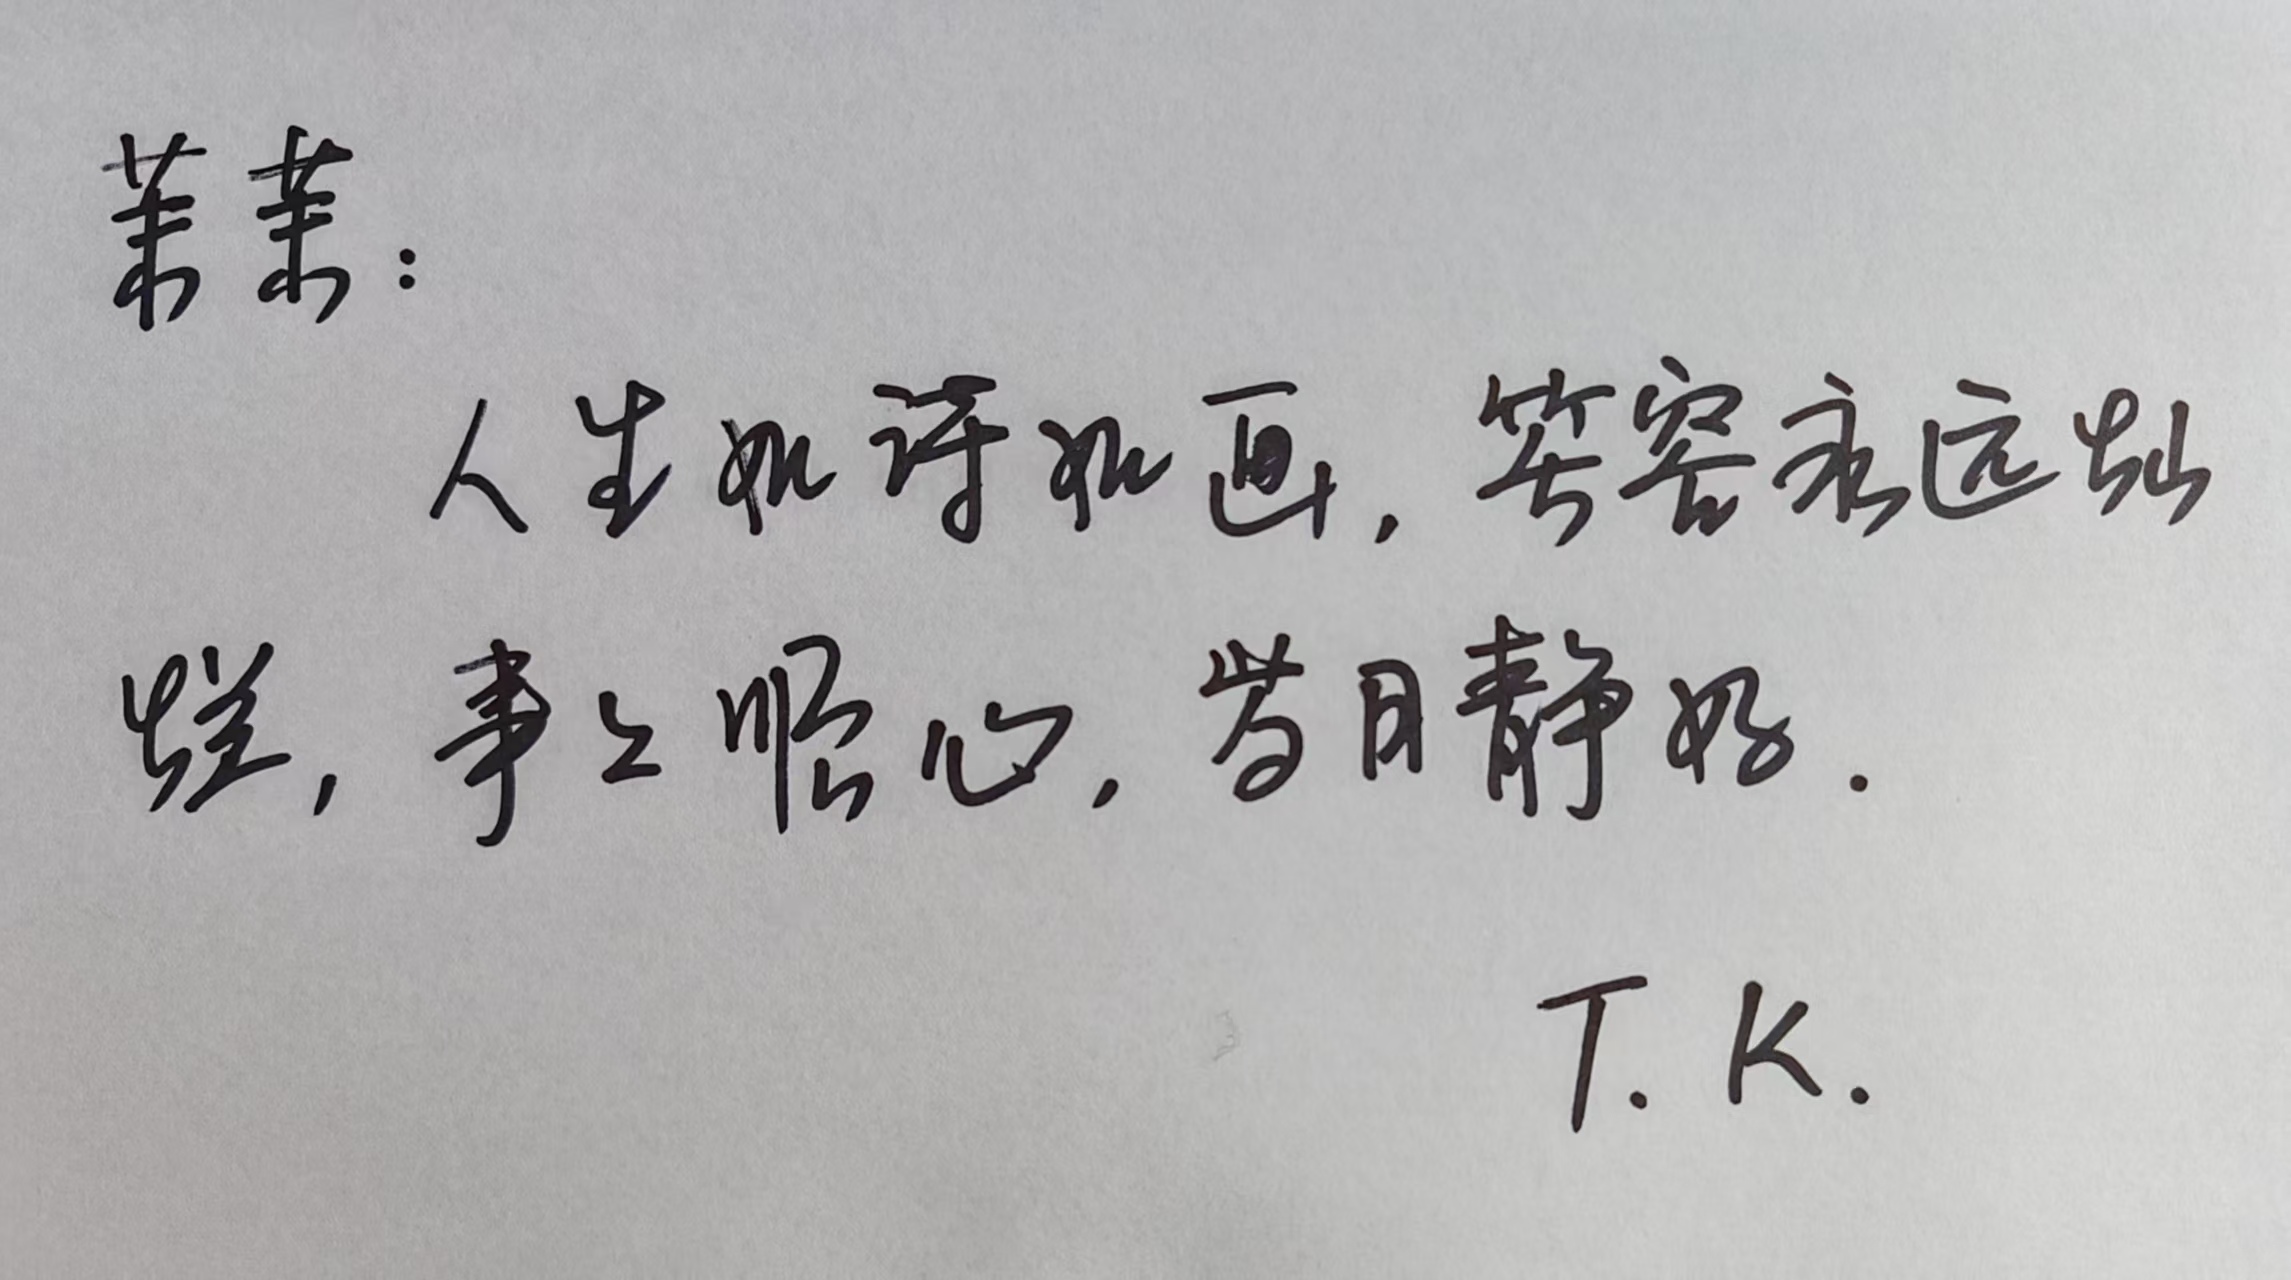 茉茉：
人生如诗如画，笑容永远灿
烂，事事顺心，岁月静好.
T. K.